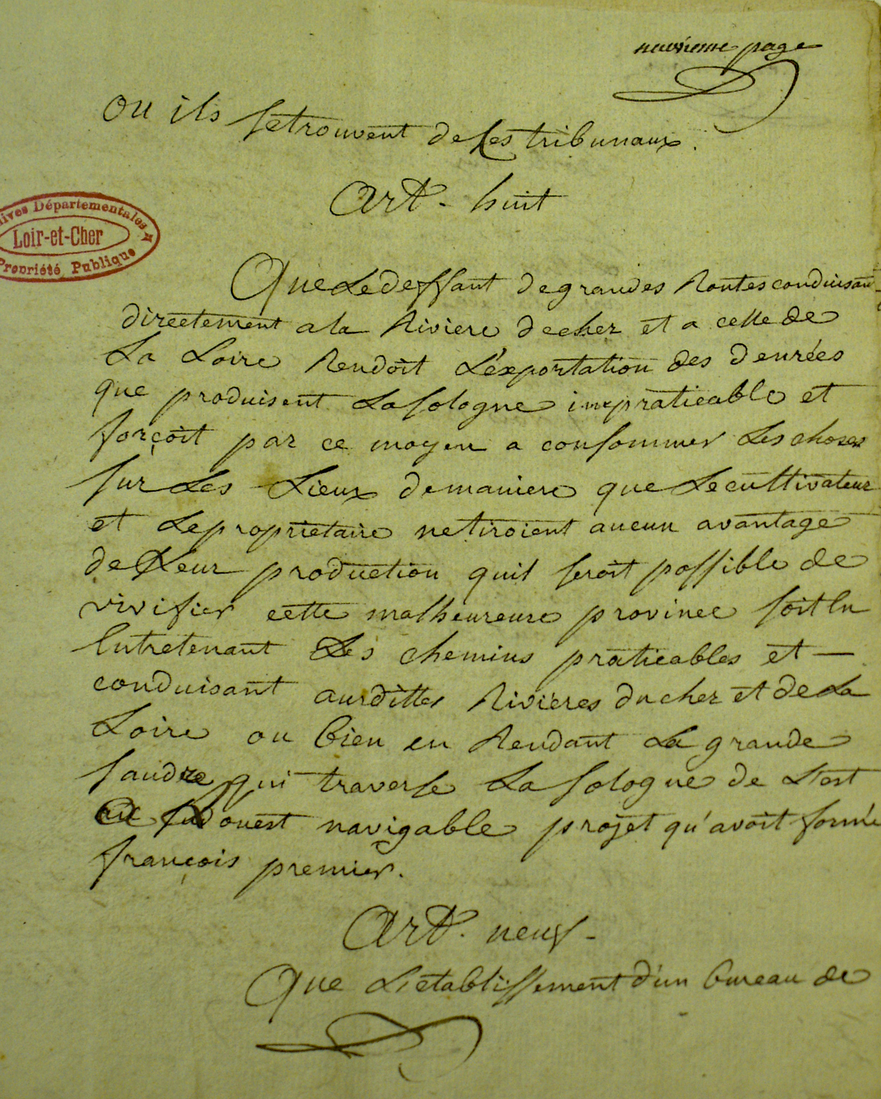 neuvieme page
ou ils se trouvent de ces tribunaux.
Archives Départementales
Loir-et-Cher
Propriété Publique
Art. huit
Que le deffaut de grandes Routes conduisan
directement a la Riviere de cher et a celle de
La Loire Rendoit L'exportation des denrées
que produisent La Sologne impraticable et
forçoit par ce moyen a consommer Les choses
sur Les Lieux de maniere que Le cultivateur
et Le propriétaire ne tiroient aucun avantage
de Leur production quil seroit possible de
vivifier cette malheureuse province soit En
Entretenant Les chemins praticables et —
conduisant aurdittes Rivieres du cher et de La
Loire ou bien en Rendant La grande
saudre qui traverse La Sologne de L'est
ouest navigable projet qu'avoit formé
françois premier.
Art. neuf -
Que L'établissement d'un bureau de